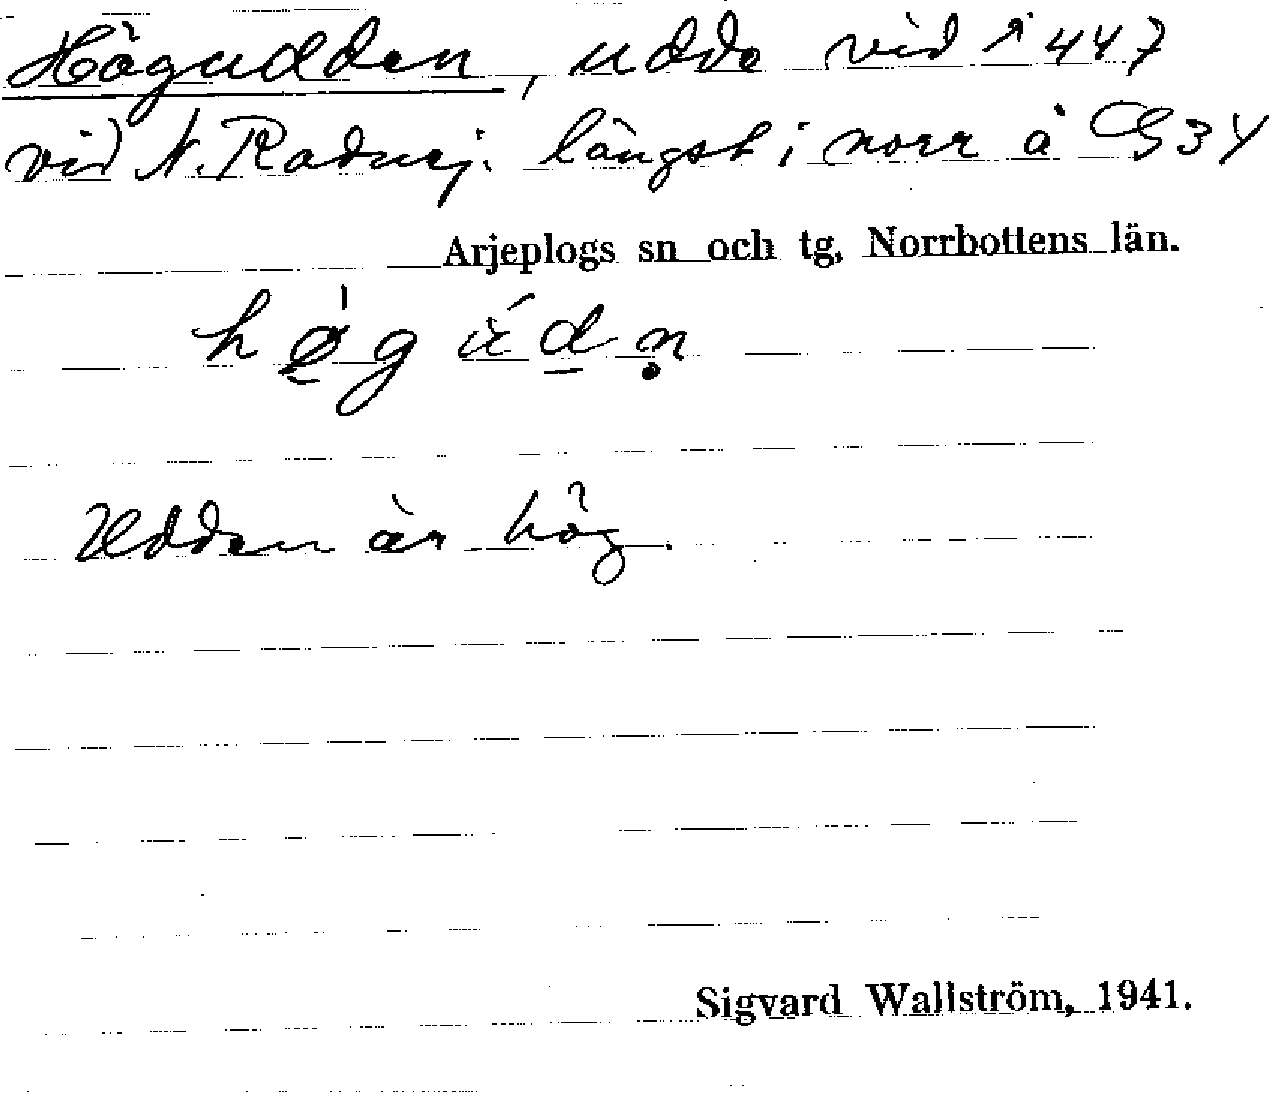 Högudden, udde vid 447
vid N. Radnej. längst i norr å G34
Arjeplogs sn och tg, Norrbottens län.
Udden är hög.
Sigvard Wallström, 1941.